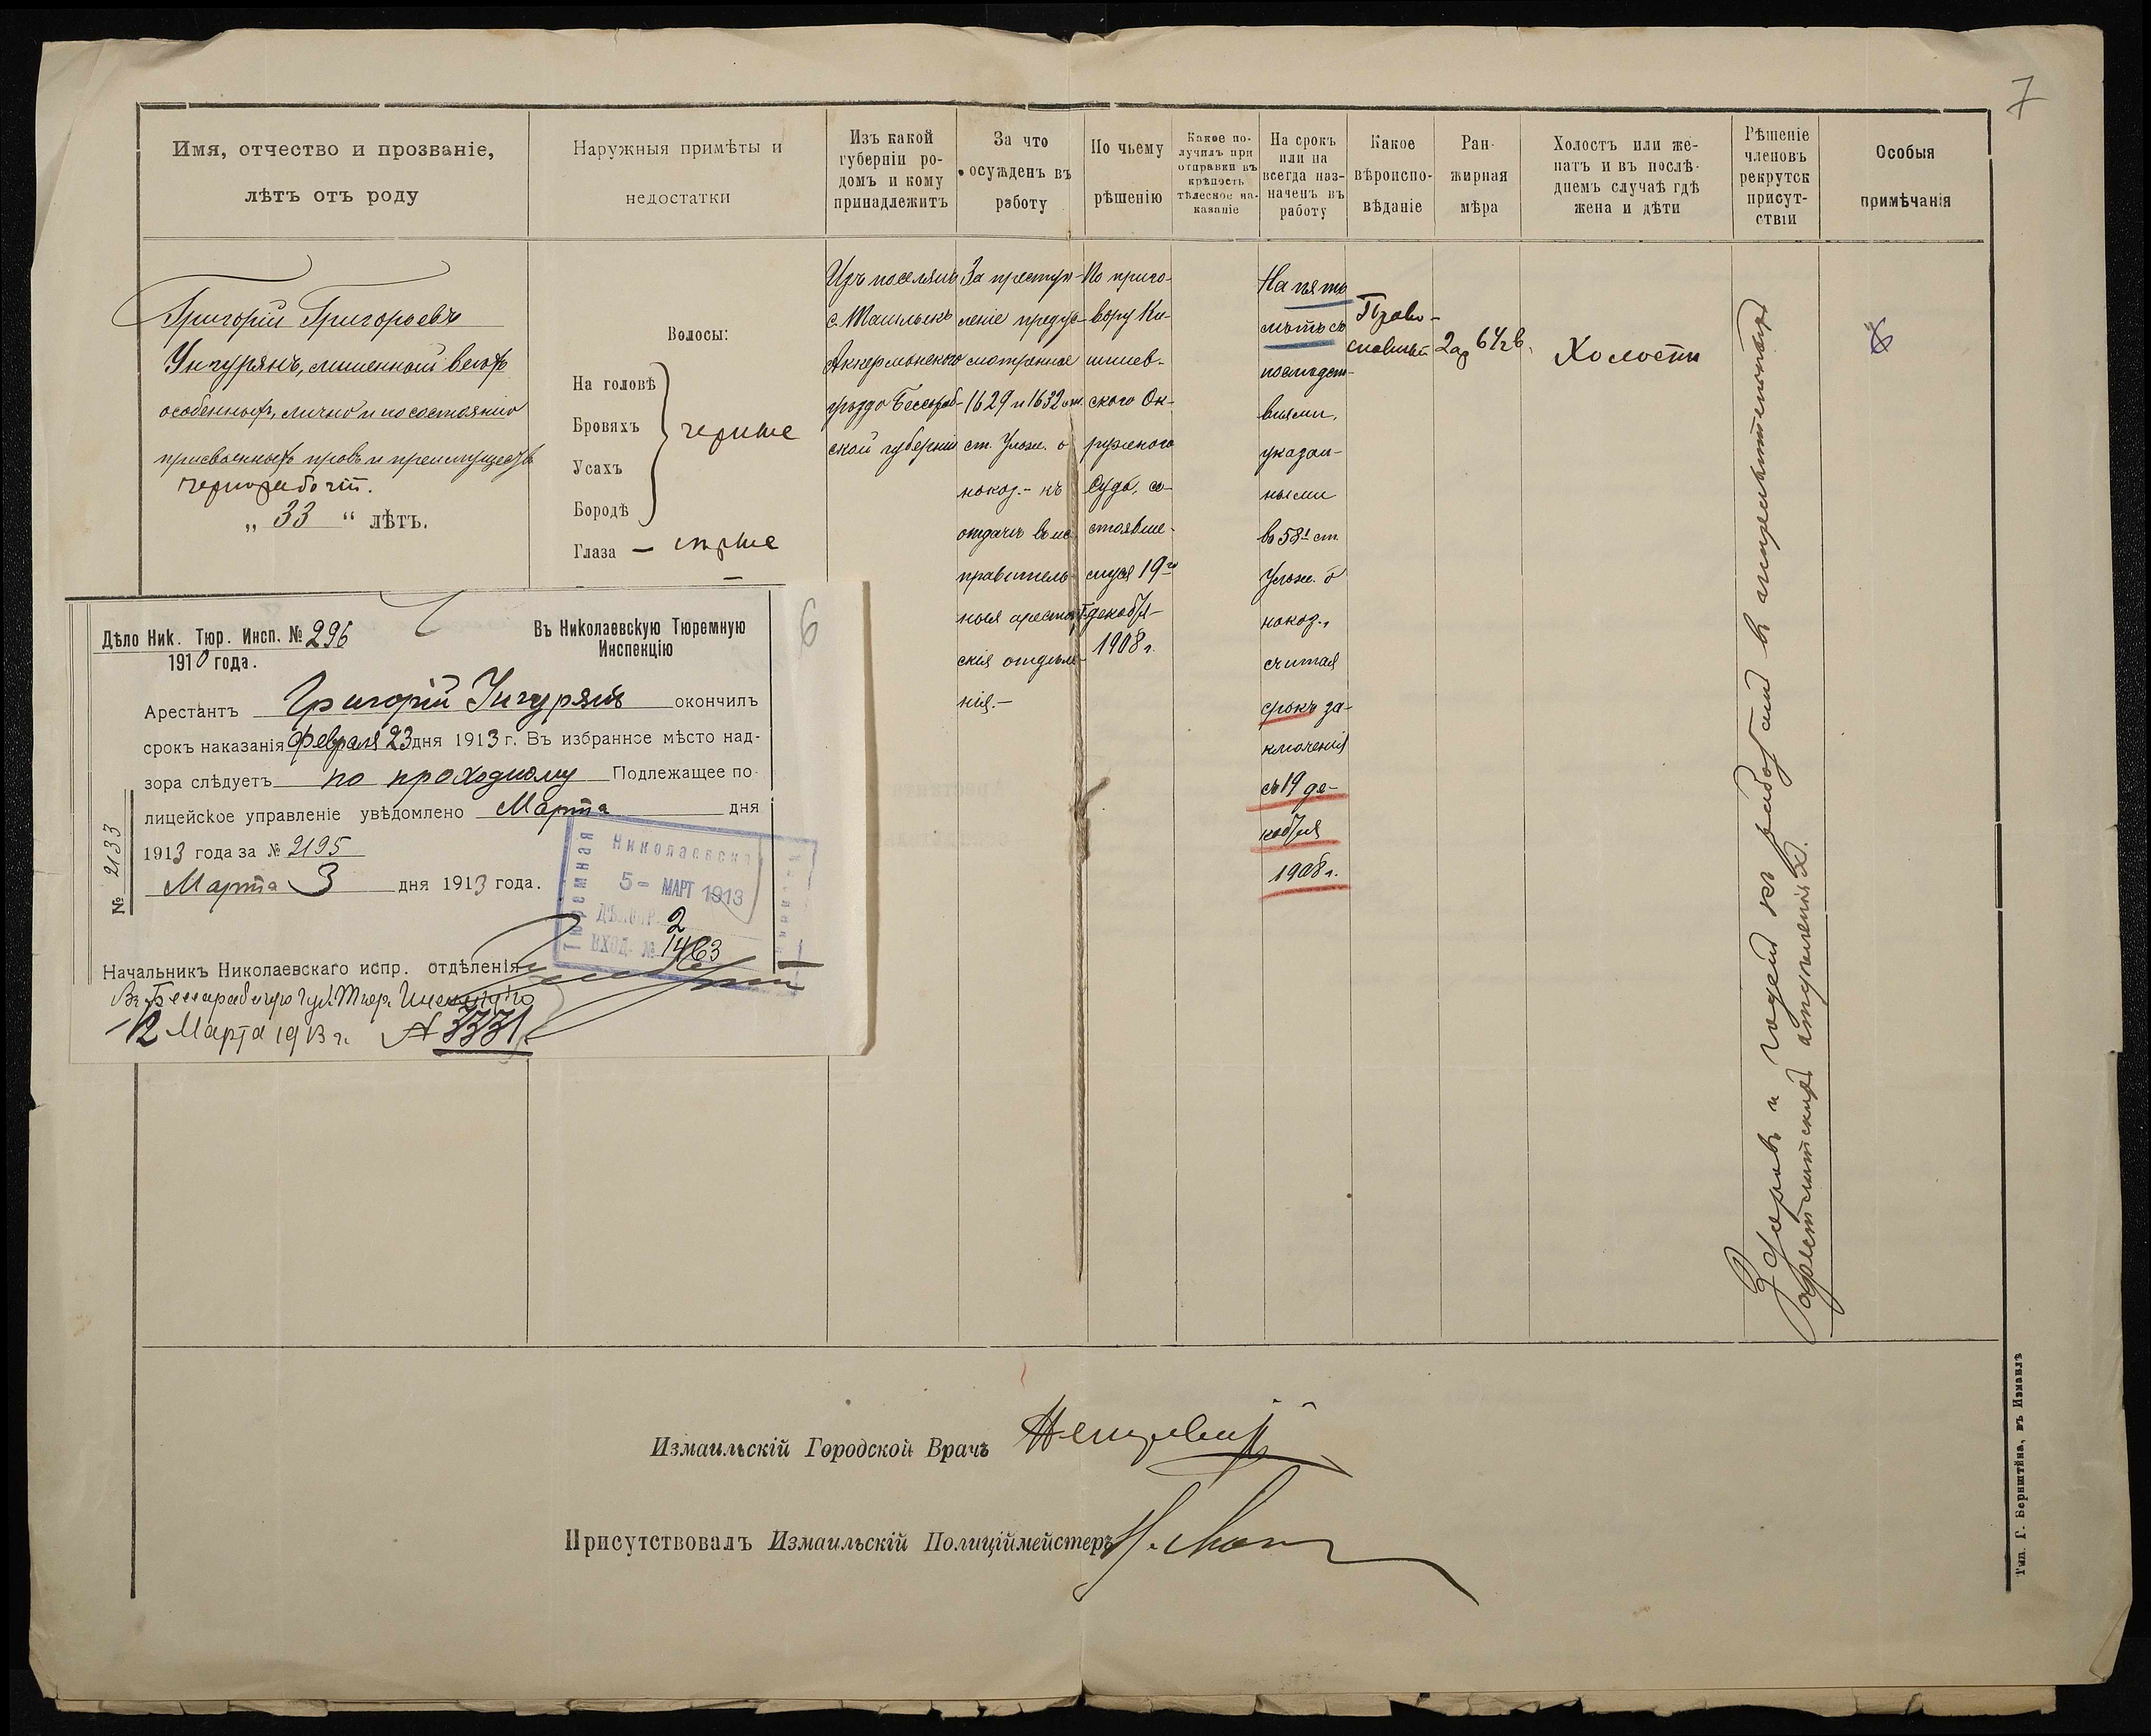 7
Имя, отчество и прозваніе,
лѣтъ отъ роду
Наружныя примѣты и
недостатки
Изъ какой
губерніи ро-
домъ и кому
принадлежитъ
За что
осужденъ въ
работу
По чьему
рѣшенію
Какое по-
лучилъ при
отправки въ
крѣпость
тѣлесное на-
казаніе
На срокъ
или на
всегда наз-
наченъ въ
работу
Какое
вѣроиспо-
вѣданіе
Ран-
жирная
мѣра
Холостъ или же-
натъ и въ послѣ-
днемъ случаѣ гдѣ
жена и дѣти
Рѣшеніе
членовъ
рекрутск
присут-
ствіи
Особыя
примѣчанія
Григорій Григорьевъ
Унгурянъ, лишенный всѣхъ
особенныхъ, лично и по состоянію
присвоенныхъ правъ и преимуществъ
чернорабочій.
„ 33 “ лѣтъ.
Волосы:
На головѣ
Бровяхъ
Усахъ
Бородѣ
черные
Глаза — сѣрые
Изъ поселянъ
с. Ташлыкъ
Аккерманскаго
уѣзда Бессараб-
ской губерніи
За преступ-
леніе преду-
смотрѣнное
1629 и 1632 ст.
ст. Улож. о
наказ.- къ
отдачѣ въ ис-
правитель-
ныя арестант-
скія отдѣле-
нія.-
По приго-
вору Ки-
шинев-
скаго Ок-
ружнаго
Суда, со-
стоявше-
муся 19го
декабря
1908 г.
На пять
лѣтъ съ
послѣдст-
віями,
указан-
ными
въ 581 ст.
Улож. о
наказ.,
считая
срокъ за-
ключенія
съ 19 де-
кабря
1908 г.
Право-
славный
2 ар 6 1/2 в.
Холостъ
Здоровъ и годенъ къ работамъ въ исправительныхъ
арестантскихъ отдѣленіяхъ.
6
Дѣло Ник. Тюр. Инсп. № 296
1910 года.
Въ Николаевскую Тюремную
Инспекцію
Арестантъ Григорій Унгурянъ окончилъ
срокъ наказанія Февраля 23 дня 1913 г. Въ избранное мѣсто над-
зора слѣдуетъ по проходному Подлежащее по-
лицейское управленіе увѣдомлено Марта дня
1913 года за № 2195
Марта 3 дня 1913 года.
№ 2133
Николаевска
Тюремная
5- МАРТ 1913
ДѢЛОПР. 2
ВХОД. № 1463
Начальникъ Николаевскаго испр. отдѣленія
Въ Бессарабскую Губ. Тюр. Инспекцію
12 Марта 1913 г. № 3331
Измаильскій Городской Врачъ
Присутствовалъ Измаильскій Полиціймейстеръ
Тип. Г. Бернштейна, въ Измаилѣ